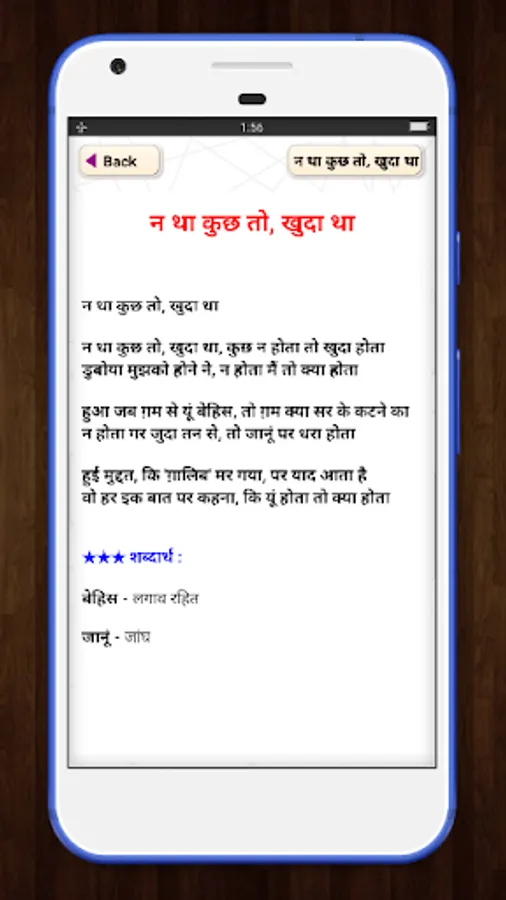 1:56
Back
न था कुछ तो, खुदा था
न था कुछ तो, खुदा था
न था कुछ तो, खुदा था
न था कुछ तो, खुदा था, कुछ न होता तो खुदा होता
डुबोया मुझको होने ने, न होता मैं तो क्या होता
हुआ जब ग़म से यूं बेहिस, तो ग़म क्या सर के कटने का
न होता गर जुदा तन से, तो जानूं पर धरा होता
हुई मुद्दत, कि 'ग़ालिब' मर गया, पर याद आता है
वो हर इक बात पर कहना, कि यूं होता तो क्या होता
★★★ शब्दार्थ :
बेहिस - लगाव रहित
जानूं - जांघ